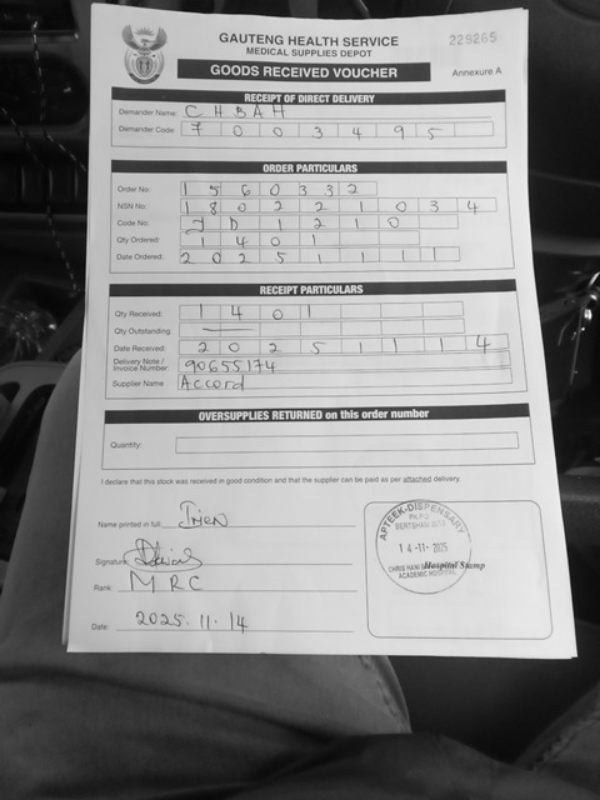 GAUTENG HEALTH SERVICE
MEDICAL SUPPLIES DEPOT
229265
GOODS RECEIVED VOUCHER
Annexure A
RECEIPT OF DIRECT DELIVERY
Demander Name: C H B A H
Demander Code: 7 0 0 3 4 9 5
ORDER PARTICULARS
Order No: 1 5 6 0 3 3 2
NSN No: 1 8 0 2 2 1 0 3 4
Code No: J D 1 2 1 0
Qty Ordered: 1 4 0 1
Date Ordered: 2 0 2 5 1 1 1 1
RECEIPT PARTICULARS
Qty Received: 1 4 0 1
Qty Outstanding
Date Received: 2 0 2 5 1 1 1 4
Delivery Note / Invoice Number: 90655174
Supplier Name Accord
OVERSUPPLIES RETURNED on this order number
Quantity:
I declare that this stock was received in good condition and that the supplier can be paid as per attached delivery.
Name printed in full:
Signature:
Rank: M R C
Date: 2025.11.14
APTEEK-DISPENSARY
BERTSHAM 2013
14-11-2025
CHRIS HANI
ACADEMIC HOSPITAL
Hospital Stamp